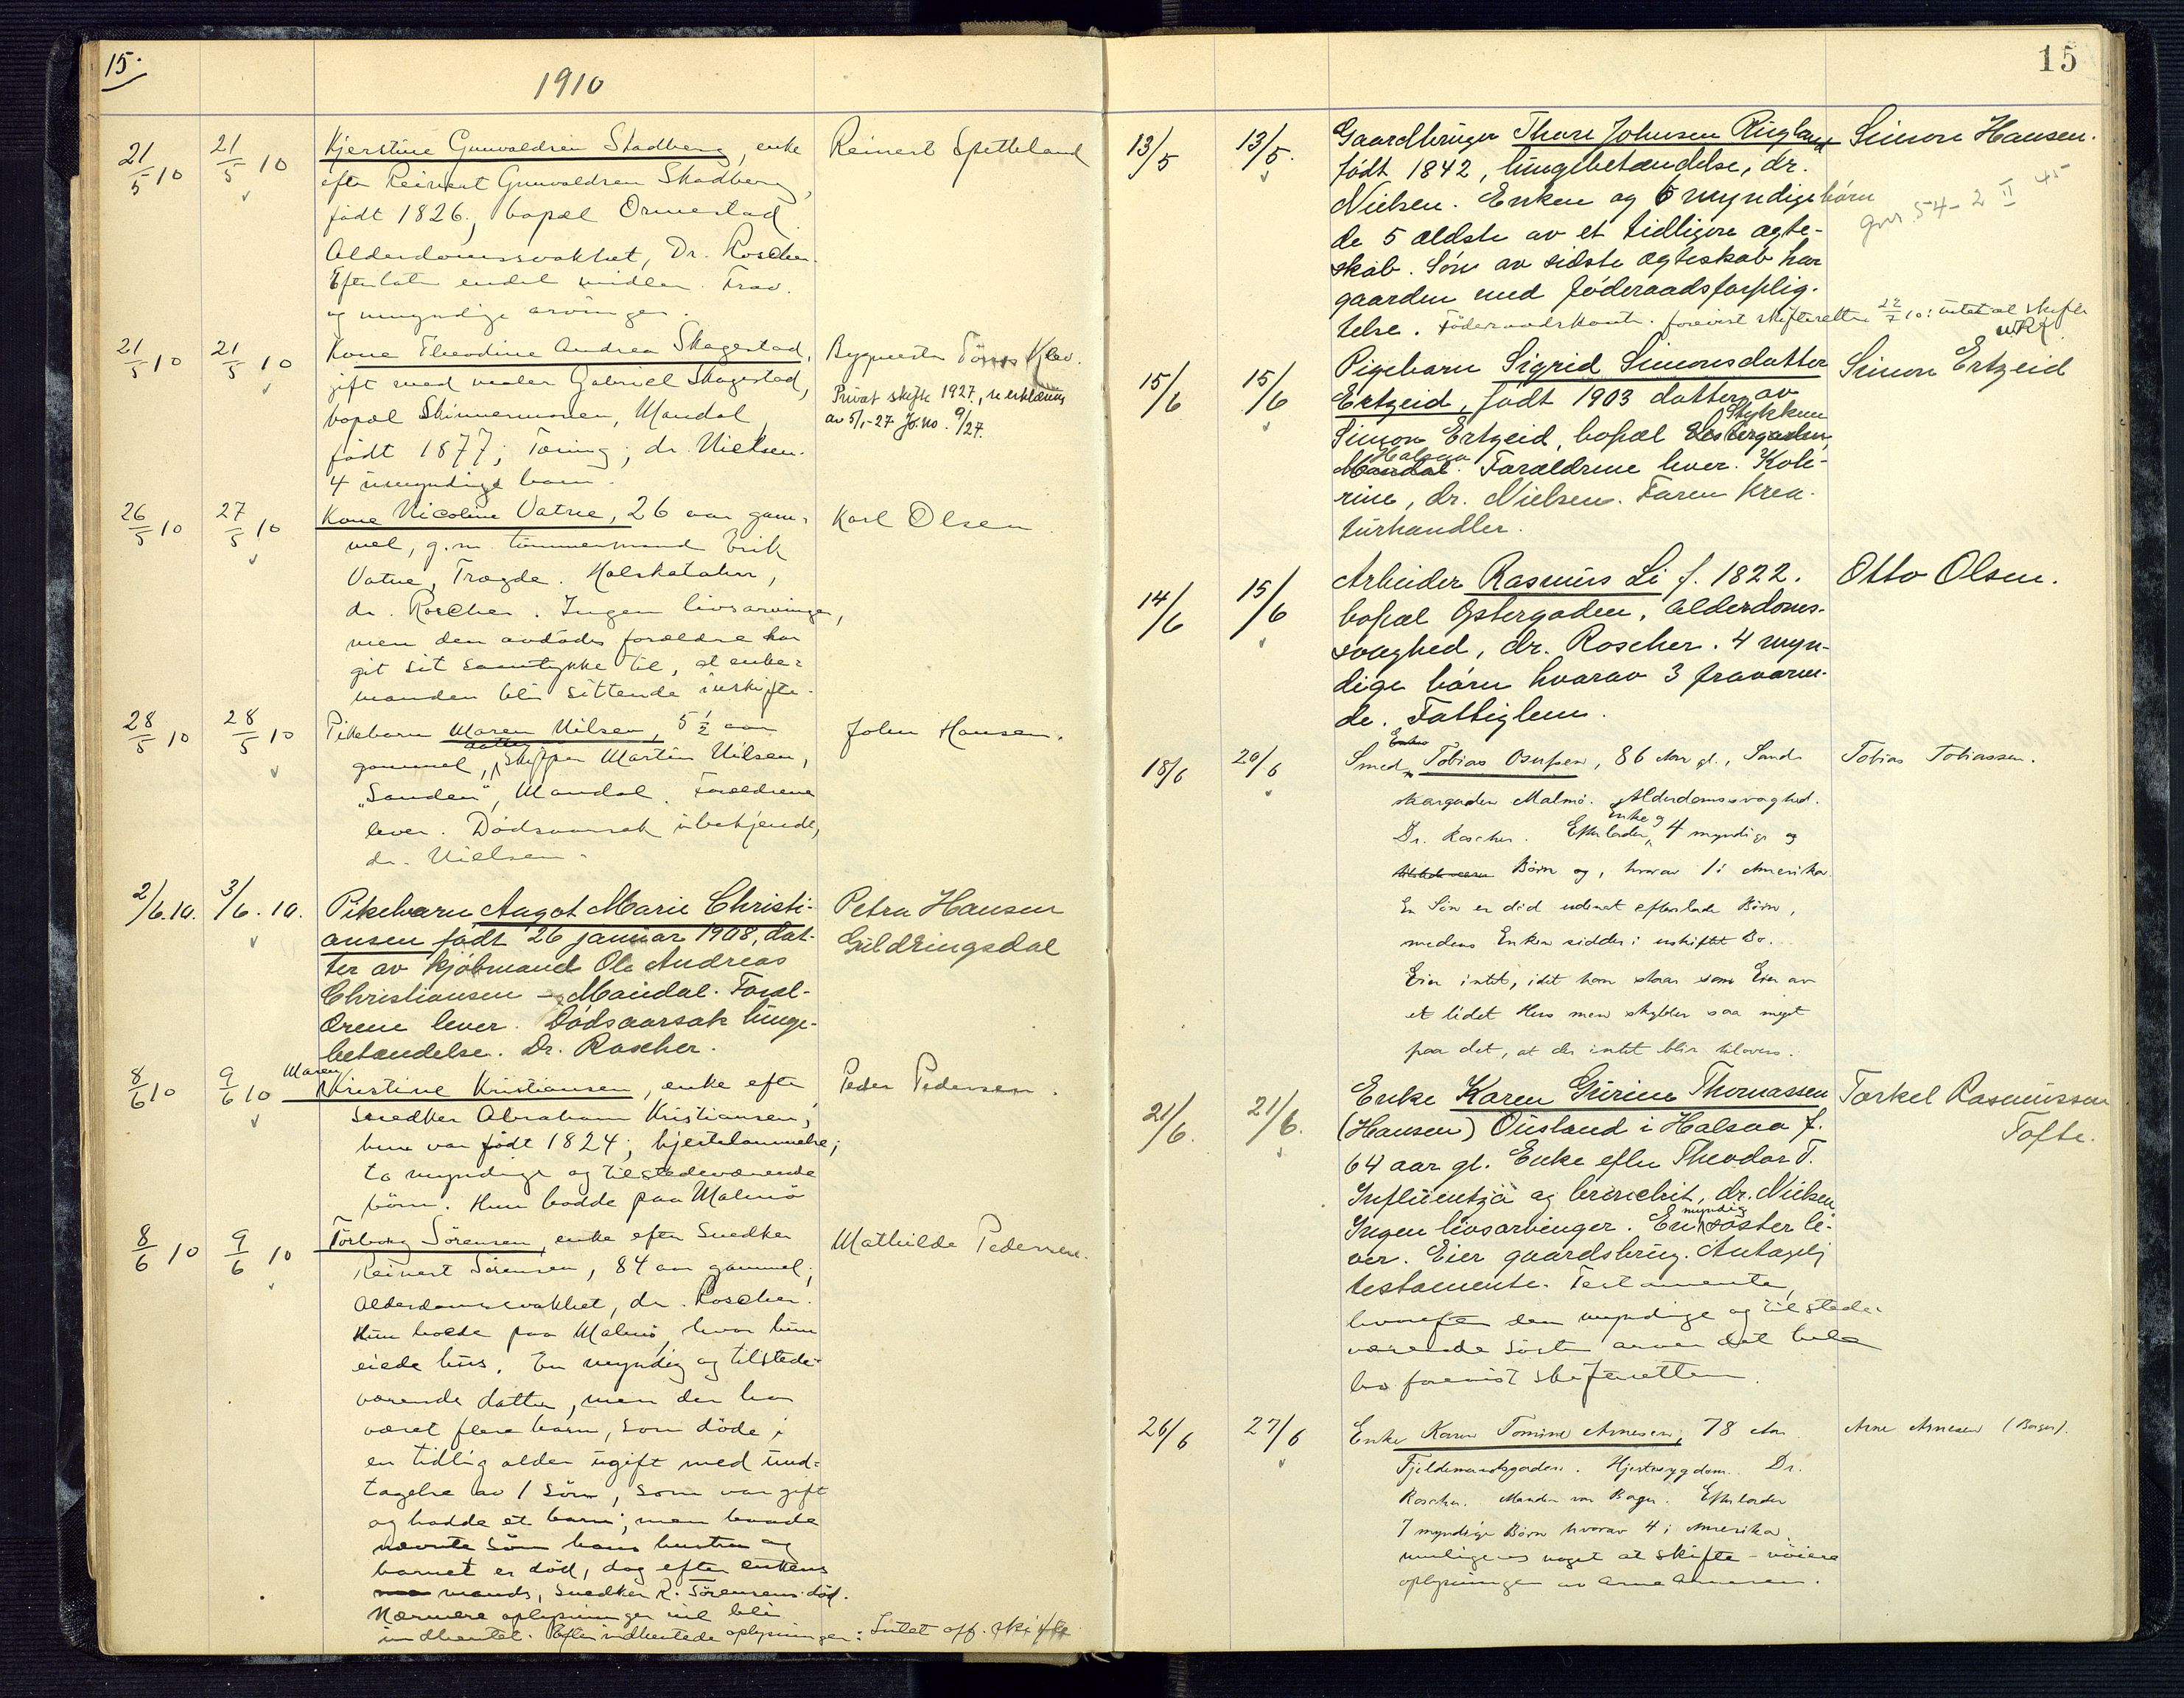 15.
1910
21/5 10 21/5 10 Kjerstine Gunvaldsen Skadberg, enke Reinert Spetteland
efter Reinert Gunvaldsen Skadberg,
födt 1826; bopæl Ormestad
Alderdomssvakhet, Dr. Roscher.
Efterlot endel midler. Frav.
og umyndige arvinger.
21/5 10 21/5 10 Kone Theodine Andrea Skagestad, Bygmester Tönnes Klev.
gift med maler Gabriel Skagestad, Privat skifte 1927, se erklæring
bopæl Skinnermoen, Mandal av 5/1-27 Jo.no. 9/27.
födt 1877; Tæring; dr. Nielsen.
4 umyndige barn.
26/5 10 27/5 10 Kone Nicoline Vatne, 26 aar gam- Karl Olsen
mel, g.m. tömmermand Erik
Vatne, Tregde. Halskatahr,
dr. Roscher. Ingen livsarvinger,
men den avdödes forældre har
git sit samtykke til, at enke-
manden blir sittende i uskifte.
28/5 10 28/5 10 Pikebarn Maren Nilsen, 5 1/2 aar John Hansen.
gammel, datter Skipper Martin Nilsen,
"Sanden", Mandal. Forældrene
lever. Dödsaarsak ubekjendt,
dr. Nielsen.
2/6.10. 3/6.10. Pikebarn Aagot Marie Christi- Petra Hansen
ansen födt 26 januar 1908, dat- Guldringsdal
ter av kjöbmand Ole Andreas
Christiansen - Mandal. Foræl-
drene lever. Dödsaarsak lunge-
betændelse. Dr. Roscher.
8/6 10 9/6 10 Maren Kristine Kristiansen, enke efter Peder Pedersen.
Snedker Abraham Kristiansen,
hun var födt 1824; hjertelammelse;
to myndige og tilstedeværende
börn. Hun bodde paa Malmö
8/6 10 9/6 10 Torborg Sörensen, enke efter Snedker Mathilde Pedersen.
Reinert Sörensen, 84 aar gammel;
Alderdomssvakhet, dr. Roscher.
Hun bodde paa Malmö, hvor hun
eiede hus. En myndig og tilstede-
værende datter, men der har
været flere barn, som döde i
en tidlig alder ugift med und-
tagelse av 1 sön, som var gift
og hadde et barn; men baade
nævnte sön hans hustru og
barnet er död, dog efter enkens
mands, Snedker R. Sörensens död.
Nærmere oplysninger vil bli
indhentet. Efter indhentede oplysninger: Intet off. skifte
15
13/5 13/5. Gaardbruger Thore Johnsen Ringland Simon Hansen.
födt 1842, lungebetændelse, dr.
Nielsen. Enken og 6 myndige börn
de 5 ældste av et tidligere ægte- gnr. 54-2 II 45
skab. Sön av sidste ægteskab har
gaarden med föderaadsforplig-
telse. Föderaadskontr. forevist skifteretten 22/7 10: intet at skifte
15/6 15/6 Pigebarn Sigrid Simonsdatter Simon Ertzeid
Ertzeid, födt 1903 datter av
Simon Ertzeid, bopæl Stykkun
Halsaa. Forældrene lever. Kole-
rine, dr. Nielsen. Faren krea-
turhandler.
14/6 15/6 Arbeider Rasmus Li f. 1822. Otto Olsen.
bopæl Östergaden, alderdoms-
svaghed, dr. Roscher. 4 myn-
dige börn hvorav 3 fraværen-
de. Fattiglem.
18/6 20/6 Smed Tobias Osufsen, 86 Aar gl., Sand- Tobias Tobiassen.
skargaden Malmö. Alderdomssvaghed.
Dr. Roscher. Efterlader Enke og 4 myndige og
tilstedeværn Börn og, hvorav 1 i Amerika.
En Sön er död udenat efterlade Börn,
medens Enken sidder i uskiftet Bo.
Eier intet, idet han staar som Eier av
et lidet Hus men skylder saa meget
paa det, at der intet blir tilovers.
21/6. 21/6. Enke Karen Gurine Thomassen Torkel Rasmussen
(Hansen) Ousland i Halsaa f. Tofte.
64 aar gl. Enke efter Theodor T.
Influentza og bronchit, dr. Nielsen
Ingen livsarvinger. En myndig söster le-
ver. Eier gaardsbrug. Antagelig
testamente. Testamente,
hvorefter den myndige og tilstede-
værende söster arver det hele
bo forevist skifteretten.
26/6 27/6 Enke Karen Tomine Arnesen, 78 Aar Arne Arnesen (Bager).
Fjeldemandsgaden. Hjertesygdom. Dr.
Roscher. Manden var Bager. Efterlader
7 myndige Börn hvorav 4 i Amerika.
muligens noget at skifte - nöiere
oplysninger av Arne Arnesen.